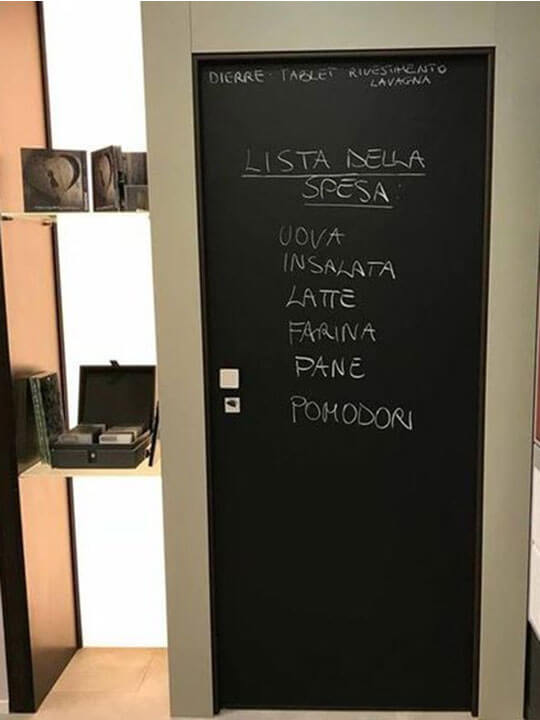 DIERRE - TABLET RIVESTIMENTO
LAVAGNA
LISTA DELLA
SPESA:
UOVA
INSALATA
LATTE
FARINA
PANE
POMODORI